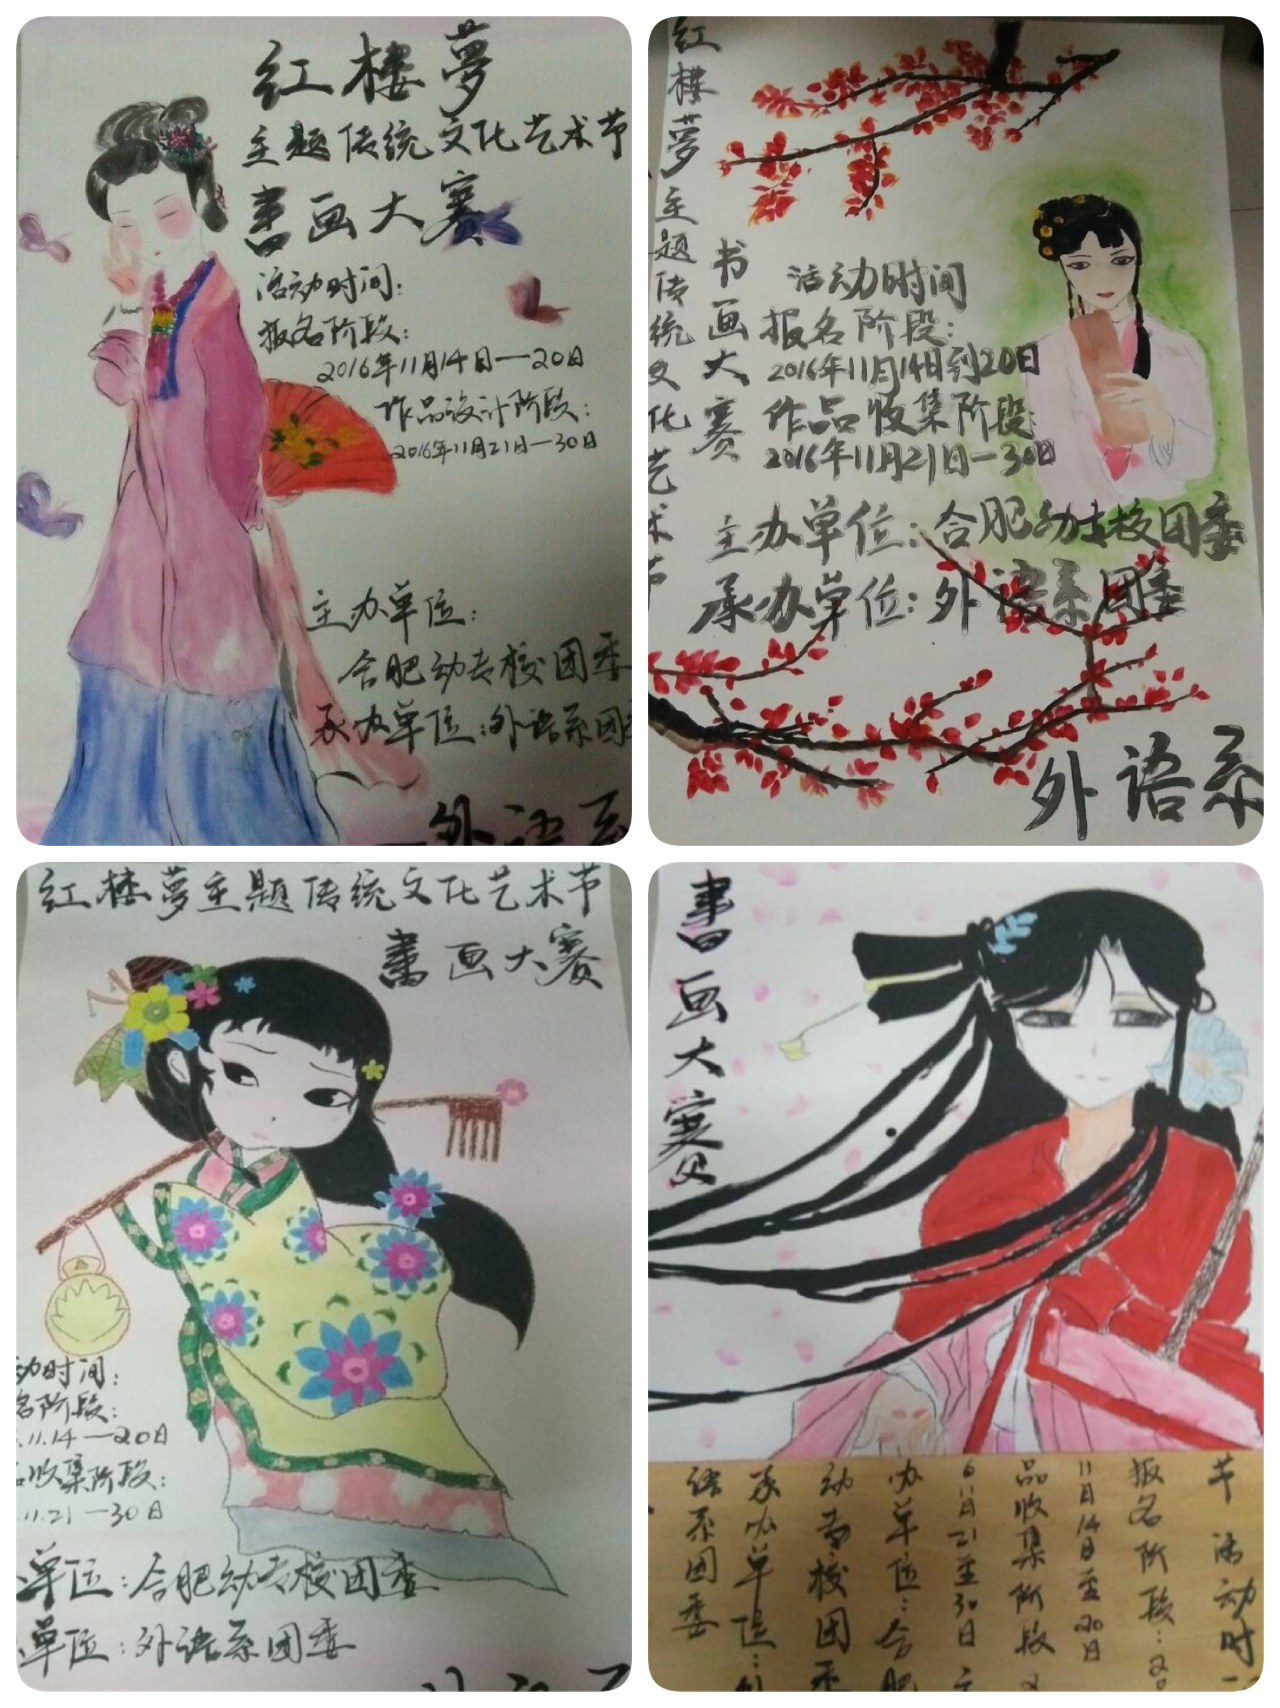 红楼夢
主题传统文化艺术节
書画大赛
活动时间:
报名阶段:
2016年11月14日—20日
作品设计阶段:
2016年11月21日—30日
主办单位:
合肥幼专校团委
承办单位:外语系团
外语系
红楼夢主题传统文化艺术节
书画大赛
活动时间
报名阶段:
2016年11月14日到20日
作品收集阶段:
2016年11月21日—30日
主办单位:合肥幼专校团委
承办单位:外语系团委
外语系
红楼夢主题传统文化艺术节
書画大赛
动时间:
名阶段:
.11.14—20日
收集阶段:
.11.21—30日
单位:合肥幼专校团委
单位:外语系团委
書画大赛
节活动时
报名阶段:20
11月14日至20日
品收集阶段2
6 11月21至30日主
办单位:合肥
幼专校团委
承办单位:外
语系团委